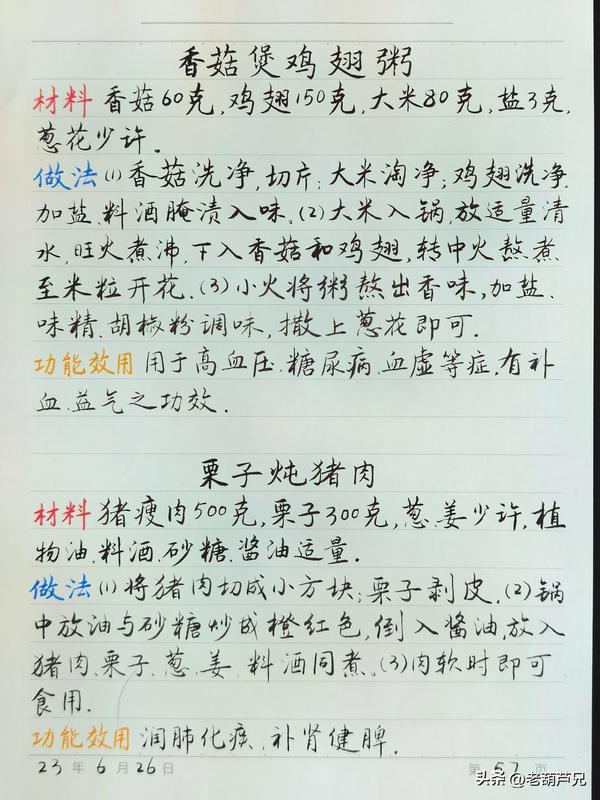 香菇煲鸡翅粥
材料 香菇60克,鸡翅150克,大米80克,盐3克,
葱花少许.
做法(1)香菇洗净,切片;大米淘净;鸡翅洗净.
加盐、料酒腌渍入味。(2)大米入锅,放适量清
水,旺火煮沸,下入香菇和鸡翅,转中火熬煮
至米粒开花.(3)小火将粥熬出香味,加盐、
味精、胡椒粉调味,撒上葱花即可.
功能效用 用于高血压、糖尿病、血虚等症.有补
血、益气之功效.
栗子炖猪肉
材料 猪瘦肉500克,栗子300克,葱、姜少许,植
物油、料酒、砂糖、酱油适量.
做法(1)将猪肉切成小方块;栗子剥皮.(2)锅
中放油与砂糖炒成橙红色,倒入酱油,放入
猪肉、栗子、葱、姜、料酒同煮.(3)肉软时即可
食用.
功能效用 润肺化痰、补肾健脾.
23年6月26日 第57页
头条@老葫芦兄